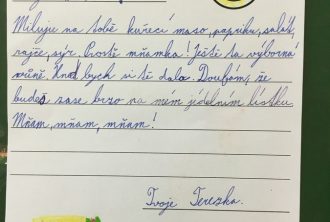 Miluju na tobě kuřecí maso, papriku, salát,
rajče, sýr. Prostě mňamka! Ještě ta výborná
vůně. Hned bych si tě dala. Doufám, že
budeš zase brzo na mém jídelním lístku.
Mňam, mňam, mňam!
Tvoje Terezka.